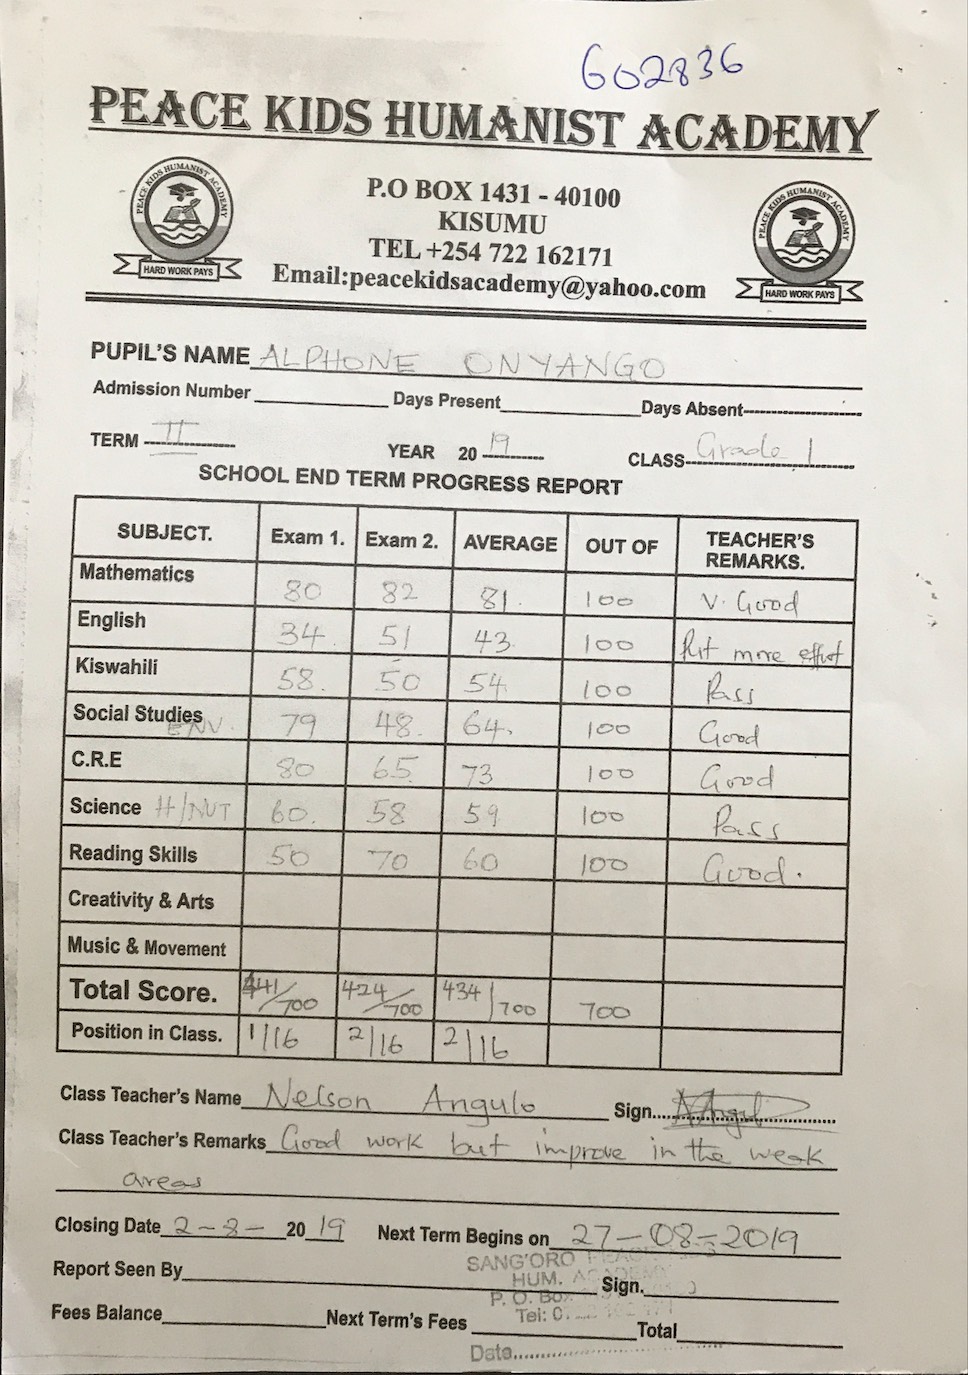 602836
PEACE KIDS HUMANIST ACADEMY
PEACE KIDS HUMANIST ACADEMY
HARD WORK PAYS
P.O BOX 1431 - 40100
KISUMU
TEL +254 722 162171
Email:peacekidsacademy@yahoo.com
PEACE KIDS HUMANIST ACADEMY
HARD WORK PAYS
PUPIL'S NAME ALPHONE ONYANGO
Admission Number Days Present Days Absent
TERM II YEAR 2019 CLASS Grade 1
SCHOOL END TERM PROGRESS REPORT
SUBJECT. Exam 1. Exam 2. AVERAGE OUT OF TEACHER'S REMARKS.
Mathematics 80 82 81. 100 V. Good
English 34. 51 43. 100 Put more effort
Kiswahili 58. 50 54. 100 Pass
Social Studies ENV. 79 48. 64. 100 Good
C.R.E 80 65. 73 100 Good
Science H/NUT 60. 58 59 100 Pass
Reading Skills 50 70 60 100 Good.
Creativity & Arts
Music & Movement
Total Score. 441/700 424/700 434/700 700
Position in Class. 1/16 2/16 2/16
Class Teacher's Name Nelson Angulo Sign
Class Teacher's Remarks Good work but improve in the weak
areas
Closing Date 2-8- 2019 Next Term Begins on 27-08-2019
SANG'ORO PEACE
Report Seen By HUM. ACADEMY Sign.
P. O. Box
Fees Balance Next Term's Fees Tel: Total
Date